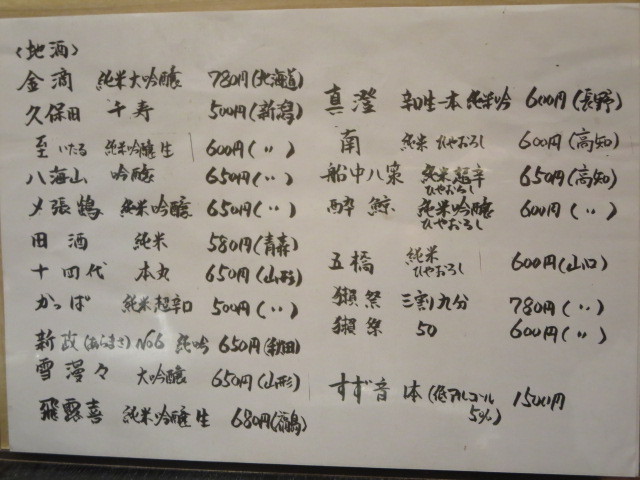 〈地酒〉
金滴 純米大吟醸 780円(北海道)
久保田 千寿 500円(新潟)
至いたる 純米吟醸生 600円(〃)
八海山 吟醸 650円(〃)
〆張鶴 純米吟醸 650円(〃)
田酒 純米 580円(青森)
十四代 本丸 650円(山形)
かっぱ 純米超辛口 500円(〃)
新政(あらまさ) No6 純吟 650円(秋田)
雪漫々 大吟醸 650円(山形)
飛露喜 純米吟醸生 680円(福島)
真澄 辛口生一本 純米吟 600円(長野)
南 純米 ひやおろし 600円(高知)
船中八策 純米超辛 650円(高知)
ひやおろし
酔鯨 純米吟醸 600円(〃)
ひやおろし
五橋 純米 600円(山口)
ひやおろし
獺祭 三割九分 780円(〃)
獺祭 50 600円(〃)
すず音 1本 (低アルコール 1500円
5%)